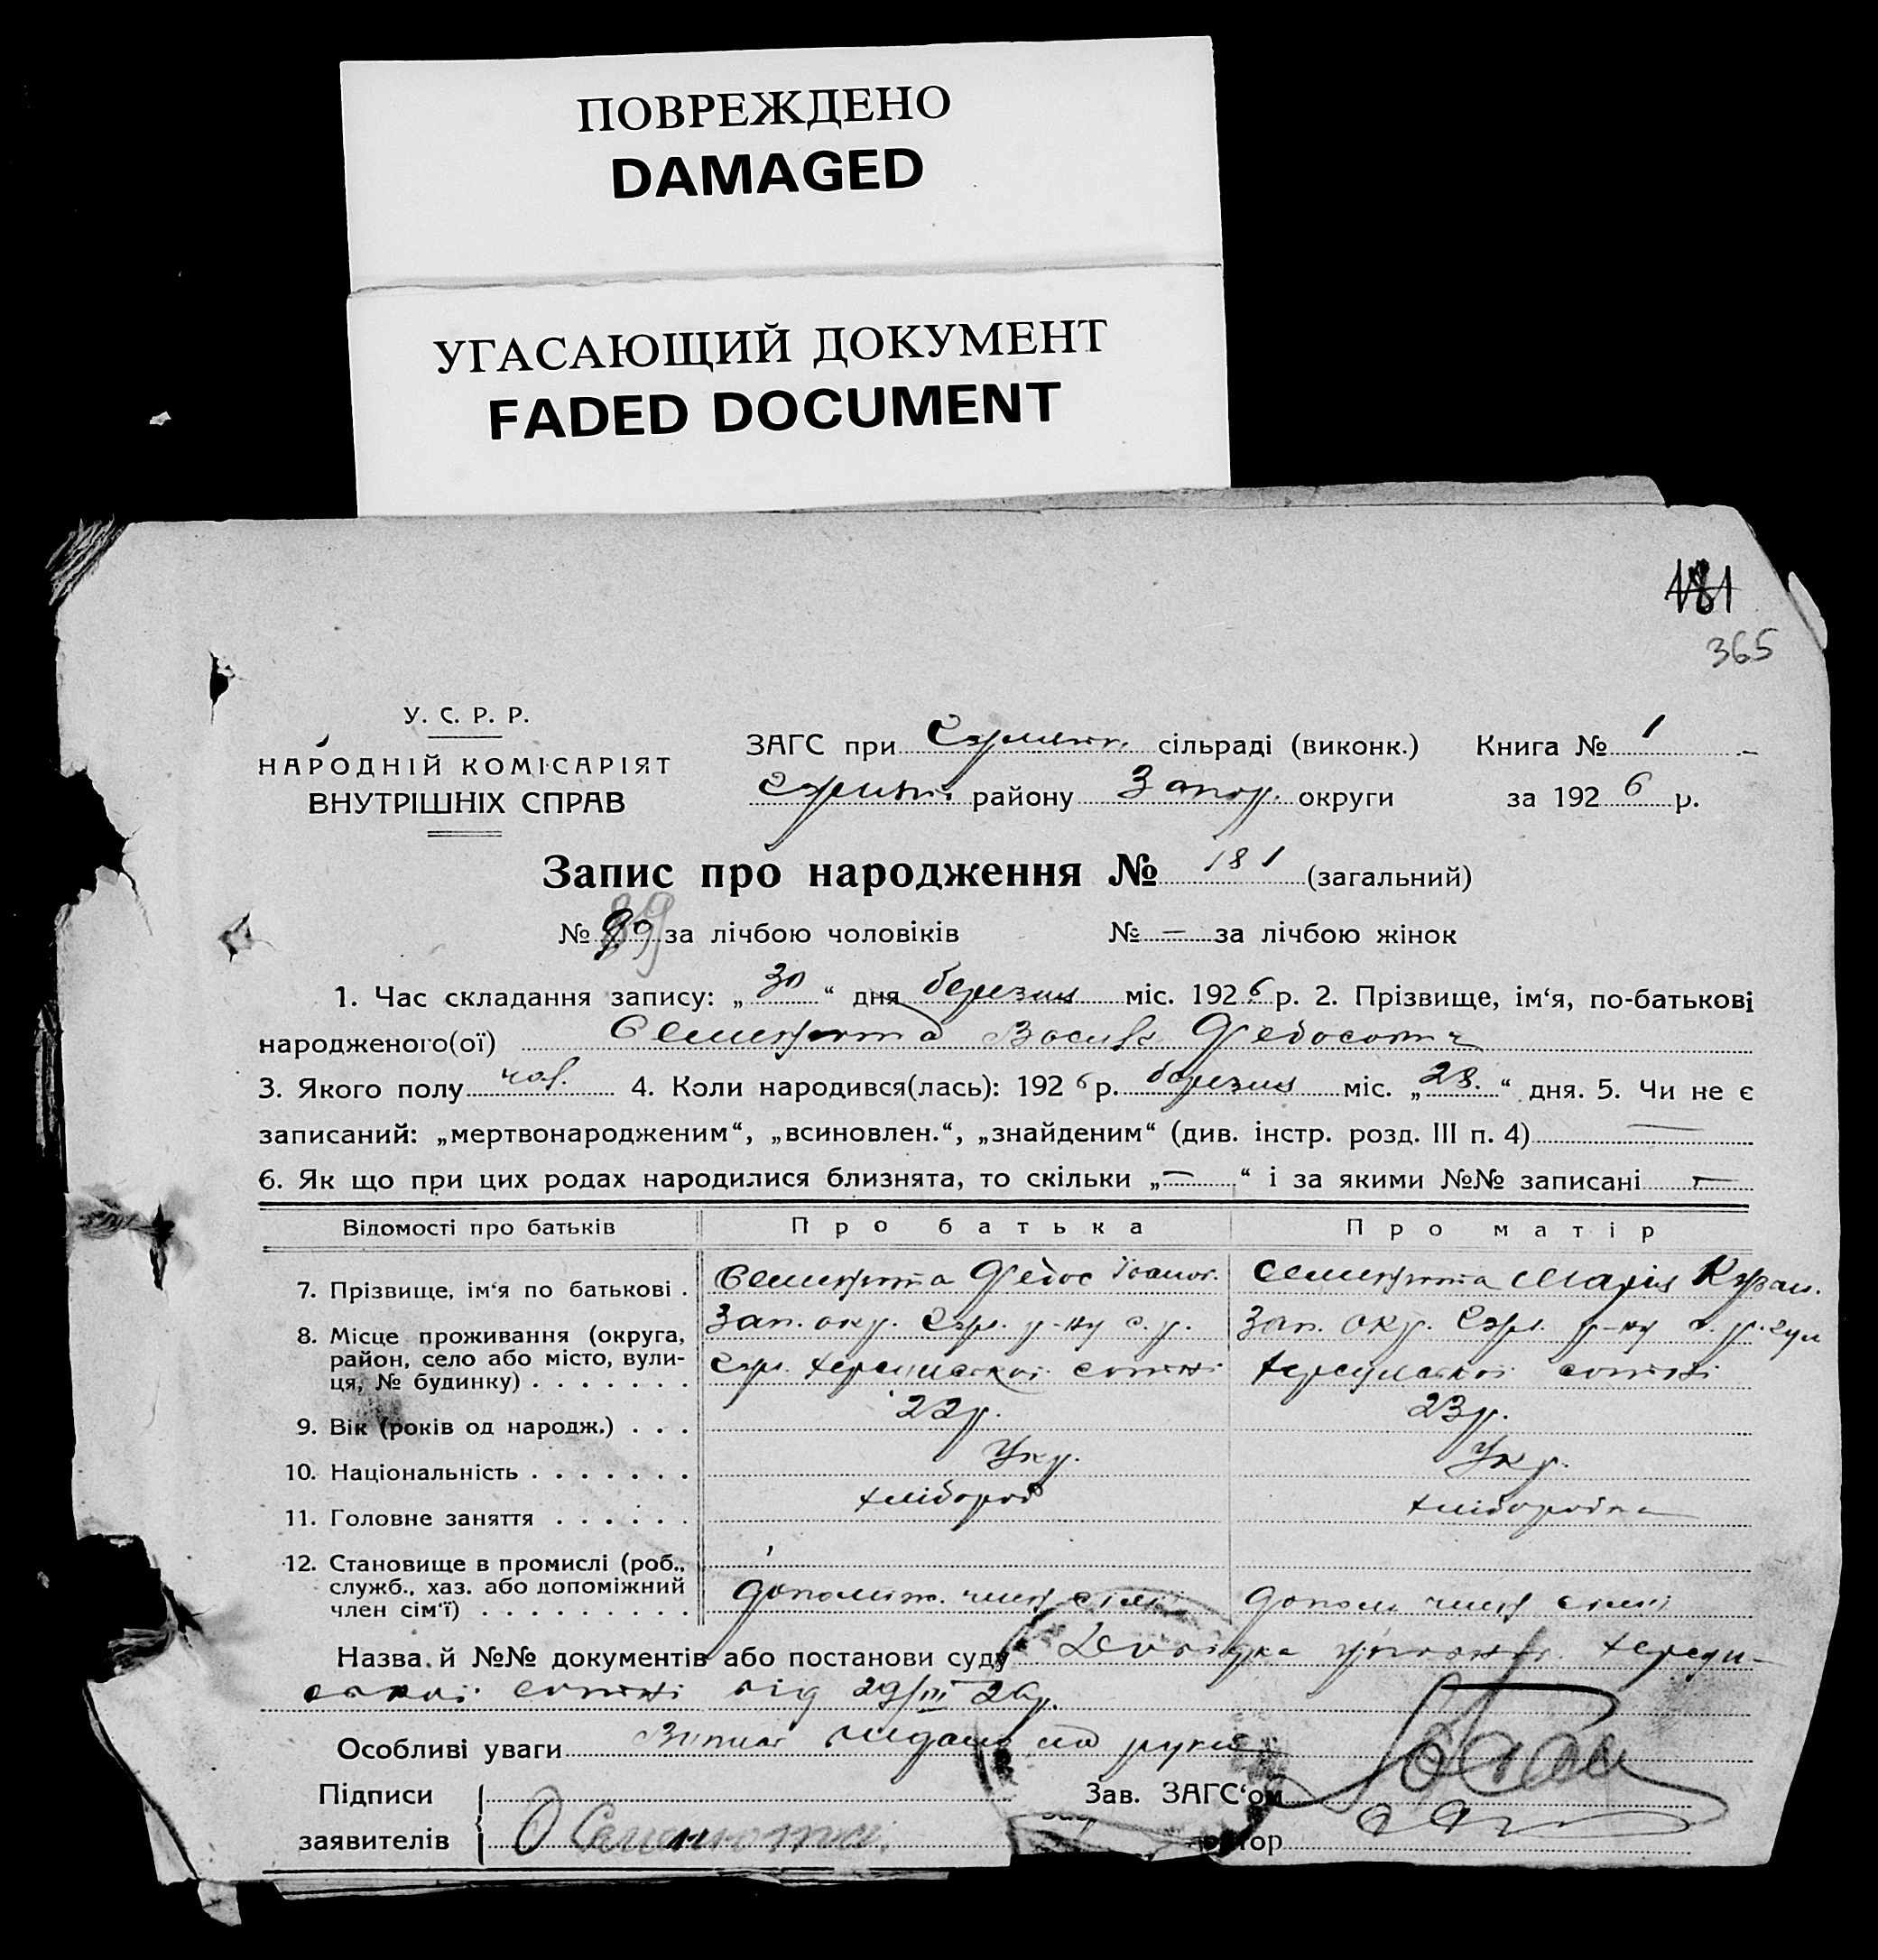 ПОВРЕЖДЕНО
DAMAGED
УГАСАЮЩИЙ ДОКУМЕНТ
FADED DOCUMENT
181
365
У. С. Р. Р.
НАРОДНІЙ КОМІСАРІЯТ
ВНУТРІШНІХ СПРАВ
ЗАГС при сільраді (виконк.) Книга № 1
району Запор. округи за 1926 р.
Запис про народження № 181 (загальний)
№ 90 89 за лічбою чоловіків № — за лічбою жінок
1. Час складання запису: „30“ дня березня міс. 1926 р. 2. Прізвище, ім‘я, по-батькові
народженого(ої) Семенюта Василь Федосович
3. Якого полу чол. 4. Коли народився(лась): 1926 р. березня міс. „28.“ дня. 5. Чи не є
записаний: „мертвонародженим“, „всиновлен.“, „знайденим“ (див. інстр. розд. III п. 4) —
6. Як що при цих родах народилися близнята, то скільки „—“ і за якими №№ записані —
Відомості про батьків Про батька Про матір
7. Прізвище, ім‘я по батькові . Семенюта Федос Іванов. Семенюта Марія
8. Місце проживання (округа, район, село або місто, вулиця, № будинку) . . . . . . .
Зап. окр. р-ну с. р. Зап. окр. р-ну с. р.
сотні сотні
9. Вік (років од народж.) . . . 22 р. 23 р.
10. Національність . . . . . . . Укр. Укр.
11. Головне заняття . . . . . . хлібороб хліборобка
12. Становище в промислі (роб., служб., хаз. або допоміжний член сім‘ї) . . . . . . . . . допоміж. член сімї допом член сімї
Назва й №№ документів або постанови суду Довідка
сотні від 29/III 26 р.
Особливі уваги Випис видано на руки
Підписи
заявителів Семенюта
Зав. ЗАГС‘ом